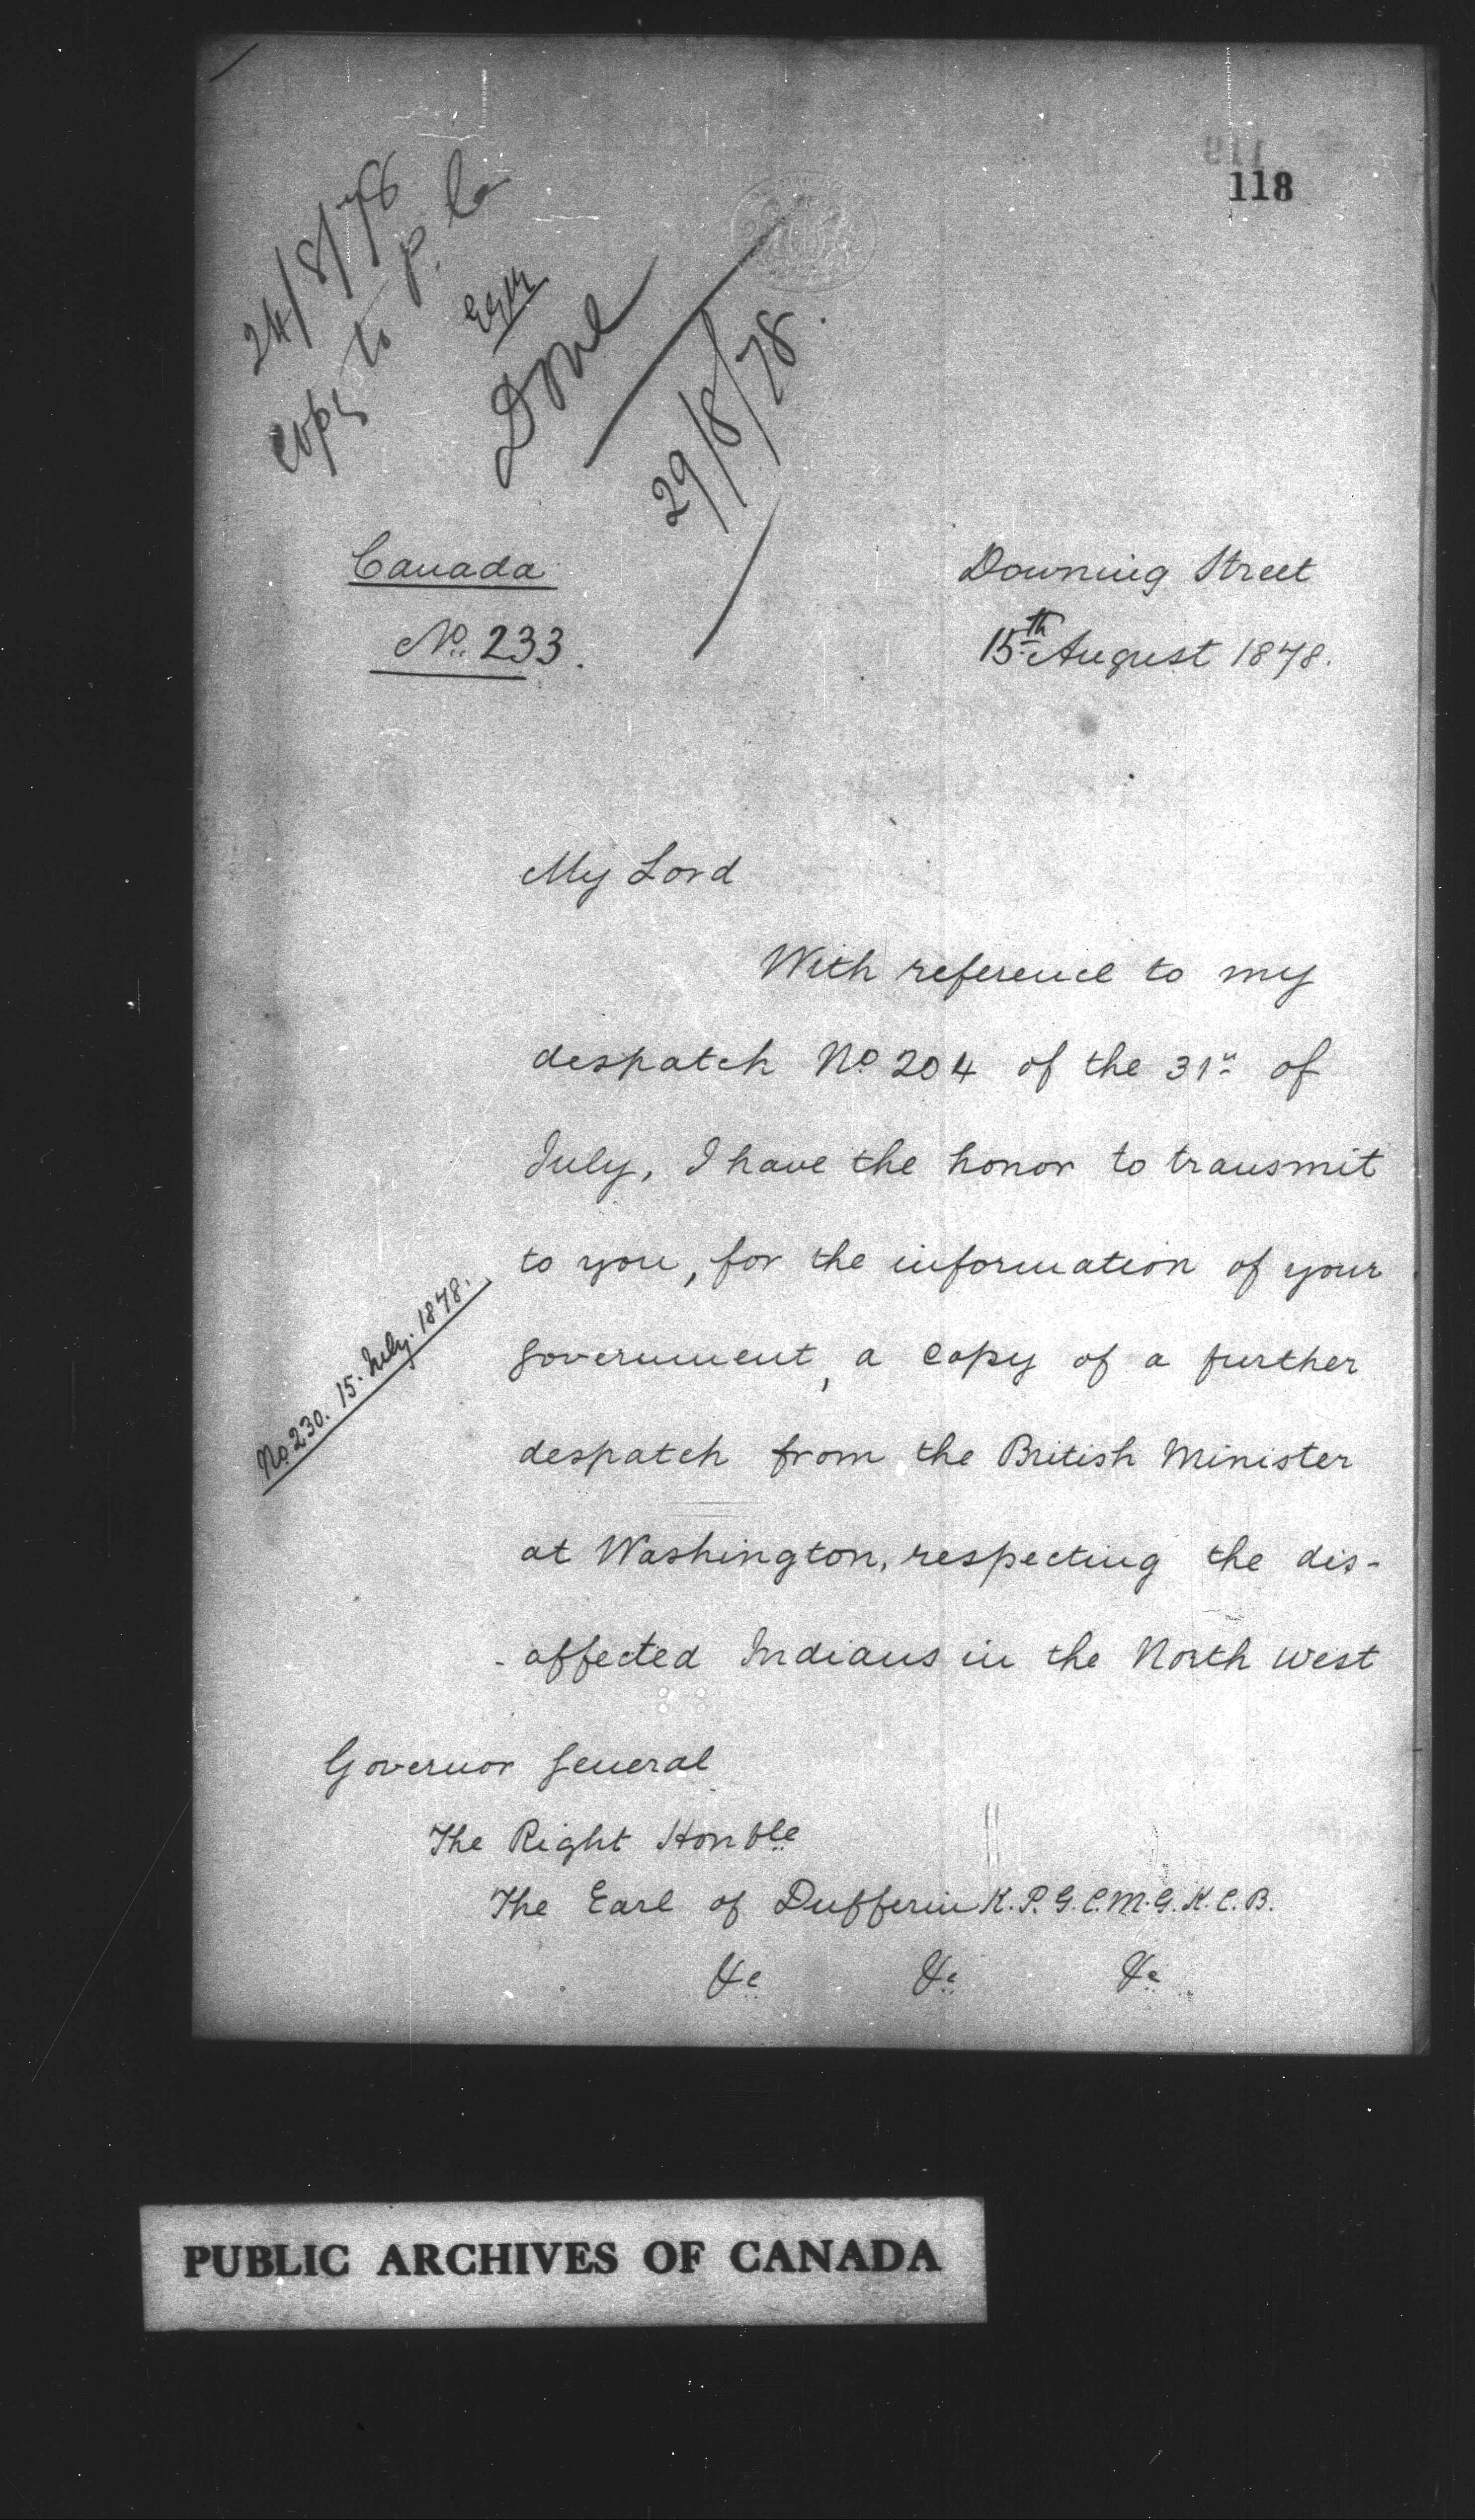 118
24/8/78
copy to P. Co
Done
29/8/78.
Canada
No. 233.
Downing Street
15th August 1878.
My Lord
With reference to my
despatch No 204 of the 31st of
July, I have the honor to transmit
to you, for the information of your
Government, a copy of a further
No. 230. 15. July. 1878.
despatch from the British Minister
at Washington, respecting the dis-
- affected Indians in the North West
Governor General
The Right Honble
The Earl of Dufferin K.P. G.C.M.G. K.C.B.
&c &c &c
PUBLIC ARCHIVES OF CANADA